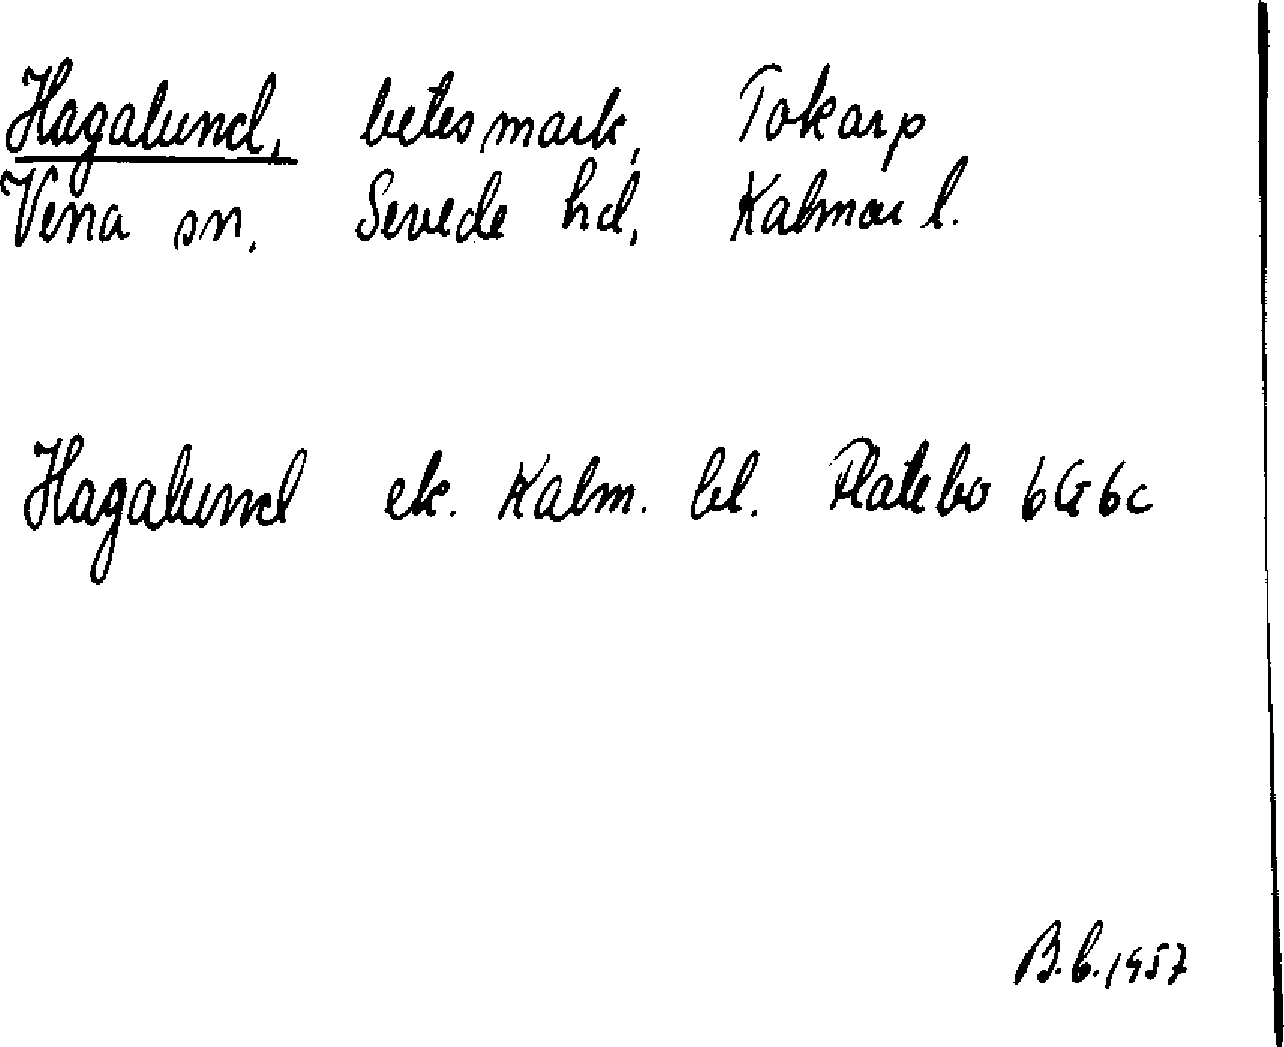 Hagalund, betesmark, Tokarp
Vena sn. Sevede hd, Kalmar l.
Hagalund ek. Kalm. bl. Platebo 6G6c
B.G. 1957